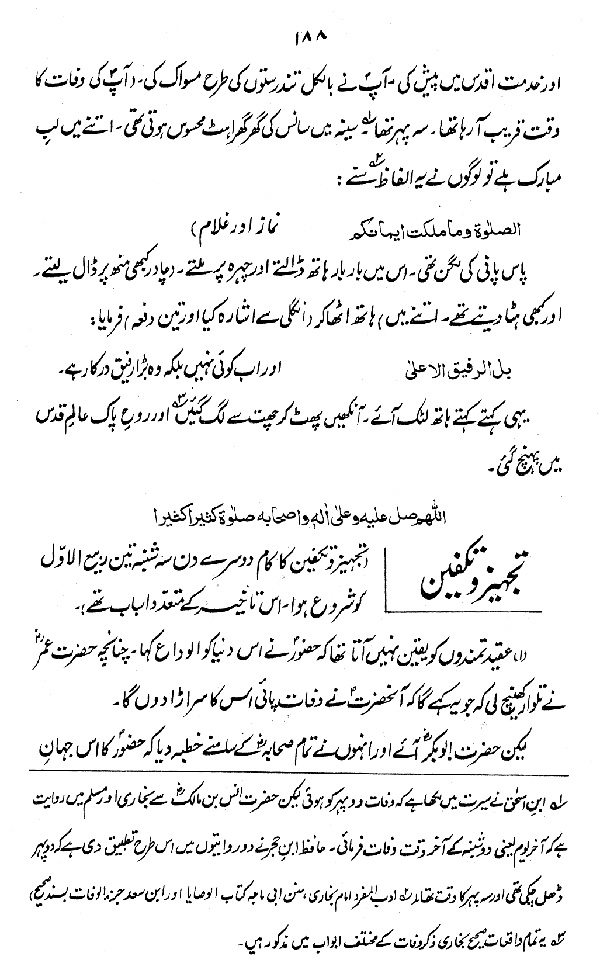 ۱۸۸
اور خدمت اقدس میں پیش کی۔ آپؐ نے بالکل تندرستوں کی طرح مسواک کی۔ (آپؐ کی وفات کا
وقت قریب آ رہا تھا۔ سہ پہر تھا سینہ میں سانس کی گھرگھراہٹ محسوس ہوتی تھی۔ اتنے میں لبِ
مبارک ہلے تو لوگوں نے یہ الفاظ سنے:
الصلوٰة وما ملکت ایمانکم نماز اور غلام)
پاس پانی کی لگن تھی۔ اس میں بار بار ہاتھ ڈالتے اور چہرہ پر ملتے۔ (چادر کبھی منہ پر ڈال لیتے۔
اور کبھی ہٹا دیتے تھے۔ اتنے میں) ہاتھ اٹھا کر (انگلی سے اشارہ کیا اور تین دفعہ) فرمایا:
بل الرفیق الاعلیٰ اور اب کوئی نہیں بلکہ وہ بڑا رفیق درکار ہے۔
یہی کہتے کہتے ہاتھ لٹک آئے۔ آنکھیں پھٹ کر چھت سے لگ گئیں۳؎ اور روحِ پاک عالمِ قدس
میں پہنچ گئی۔
اللھم صل علیہ وعلیٰ اٰلہ واصحابہ صلوٰة کثیراً کثیرا
تجہیز و تکفین
(تجہیز و تکفین کا کام دوسرے دن سہ شنبہ تین ربیع الاوّل
کو شروع ہوا۔ اس تاخیر کے متعدد اسباب تھے)۔
(۱) عقیدتمندوں کو یقین نہیں آتا تھا کہ حضورؐ نے اس دنیا کو الوداع کہا۔ چنانچہ حضرت عمرؓ
نے تلوار کھینچ لی کہ جو یہ کہے گا کہ آنحضرتؐ نے وفات پائی اس کا سر اڑا دوں گا۔
لیکن حضرت ابوبکرؓ آئے اور انہوں نے تمام صحابہؓ کے سامنے خطبہ دیا کہ حضورؐ کا اس جہان
۱؎ ابن اسحٰق نے سیرت میں لکھا ہے کہ وفات دوپہر کو ہوئی لیکن حضرت انس بن مالکؓ سے بخاری اور مسلم میں روایت
ہے کہ آخر یوم یعنی دوشنبہ کے آخر وقت وفات فرمائی۔ حافظ ابن حجر نے دو روایتوں میں اس طرح تطبیق دی ہے کہ دوپہر
ڈھل چکی تھی اور سہ پہر کا وقت تھا ۲؎ ادب المفرد امام بخاری، سنن ابی ماجہ کتاب الوصایا اور ابن سعد جزء الوفات بسند صحیح)
۳؎ یہ تمام واقعات صحیح بخاری ذکر وفات کے مختلف ابواب میں مذکور ہیں۔